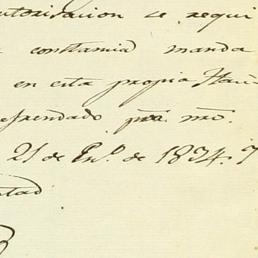 autorisacion se requi
constancia manda
en esta propia Haci
refrendado por mro.
21 de En.º de 1834.